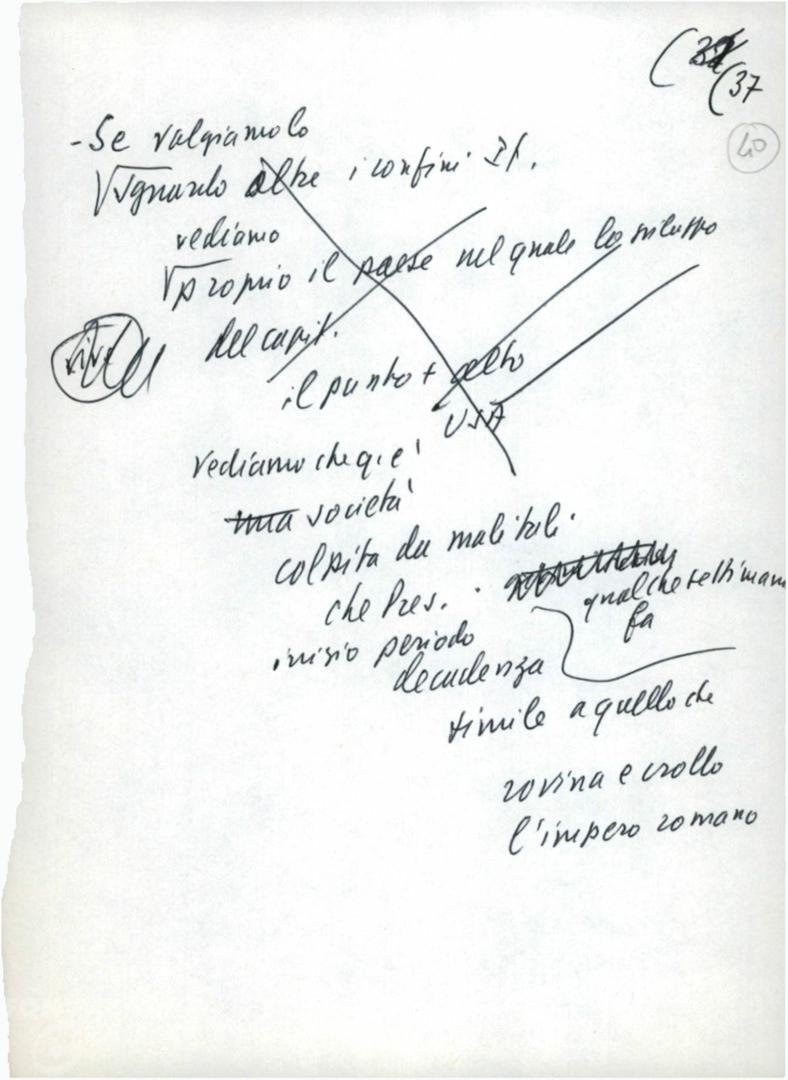 (32
(37
40
- Se volgiamo lo
sguardo oltre i confini It.
vediamo
proprio il paese nel quale lo sviluppo
del capit.
il punto + alto
USA
vediamo che q. è
una società
colpita da mali tali
che Pres. qualche settimana
fa
inizio periodo
decadenza
simile a quello che
rovina e crollo
l'impero romano